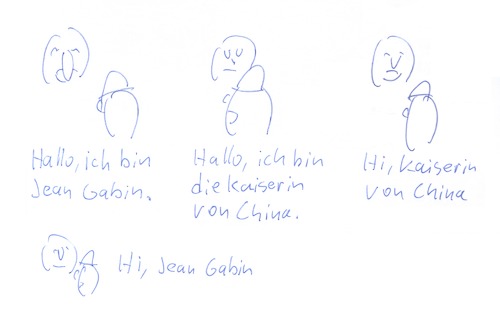 Hallo, ich bin
Jean Gabin.
Hallo, ich bin
die Kaiserin
von China.
Hi, Kaiserin
von China
Hi, Jean Gabin